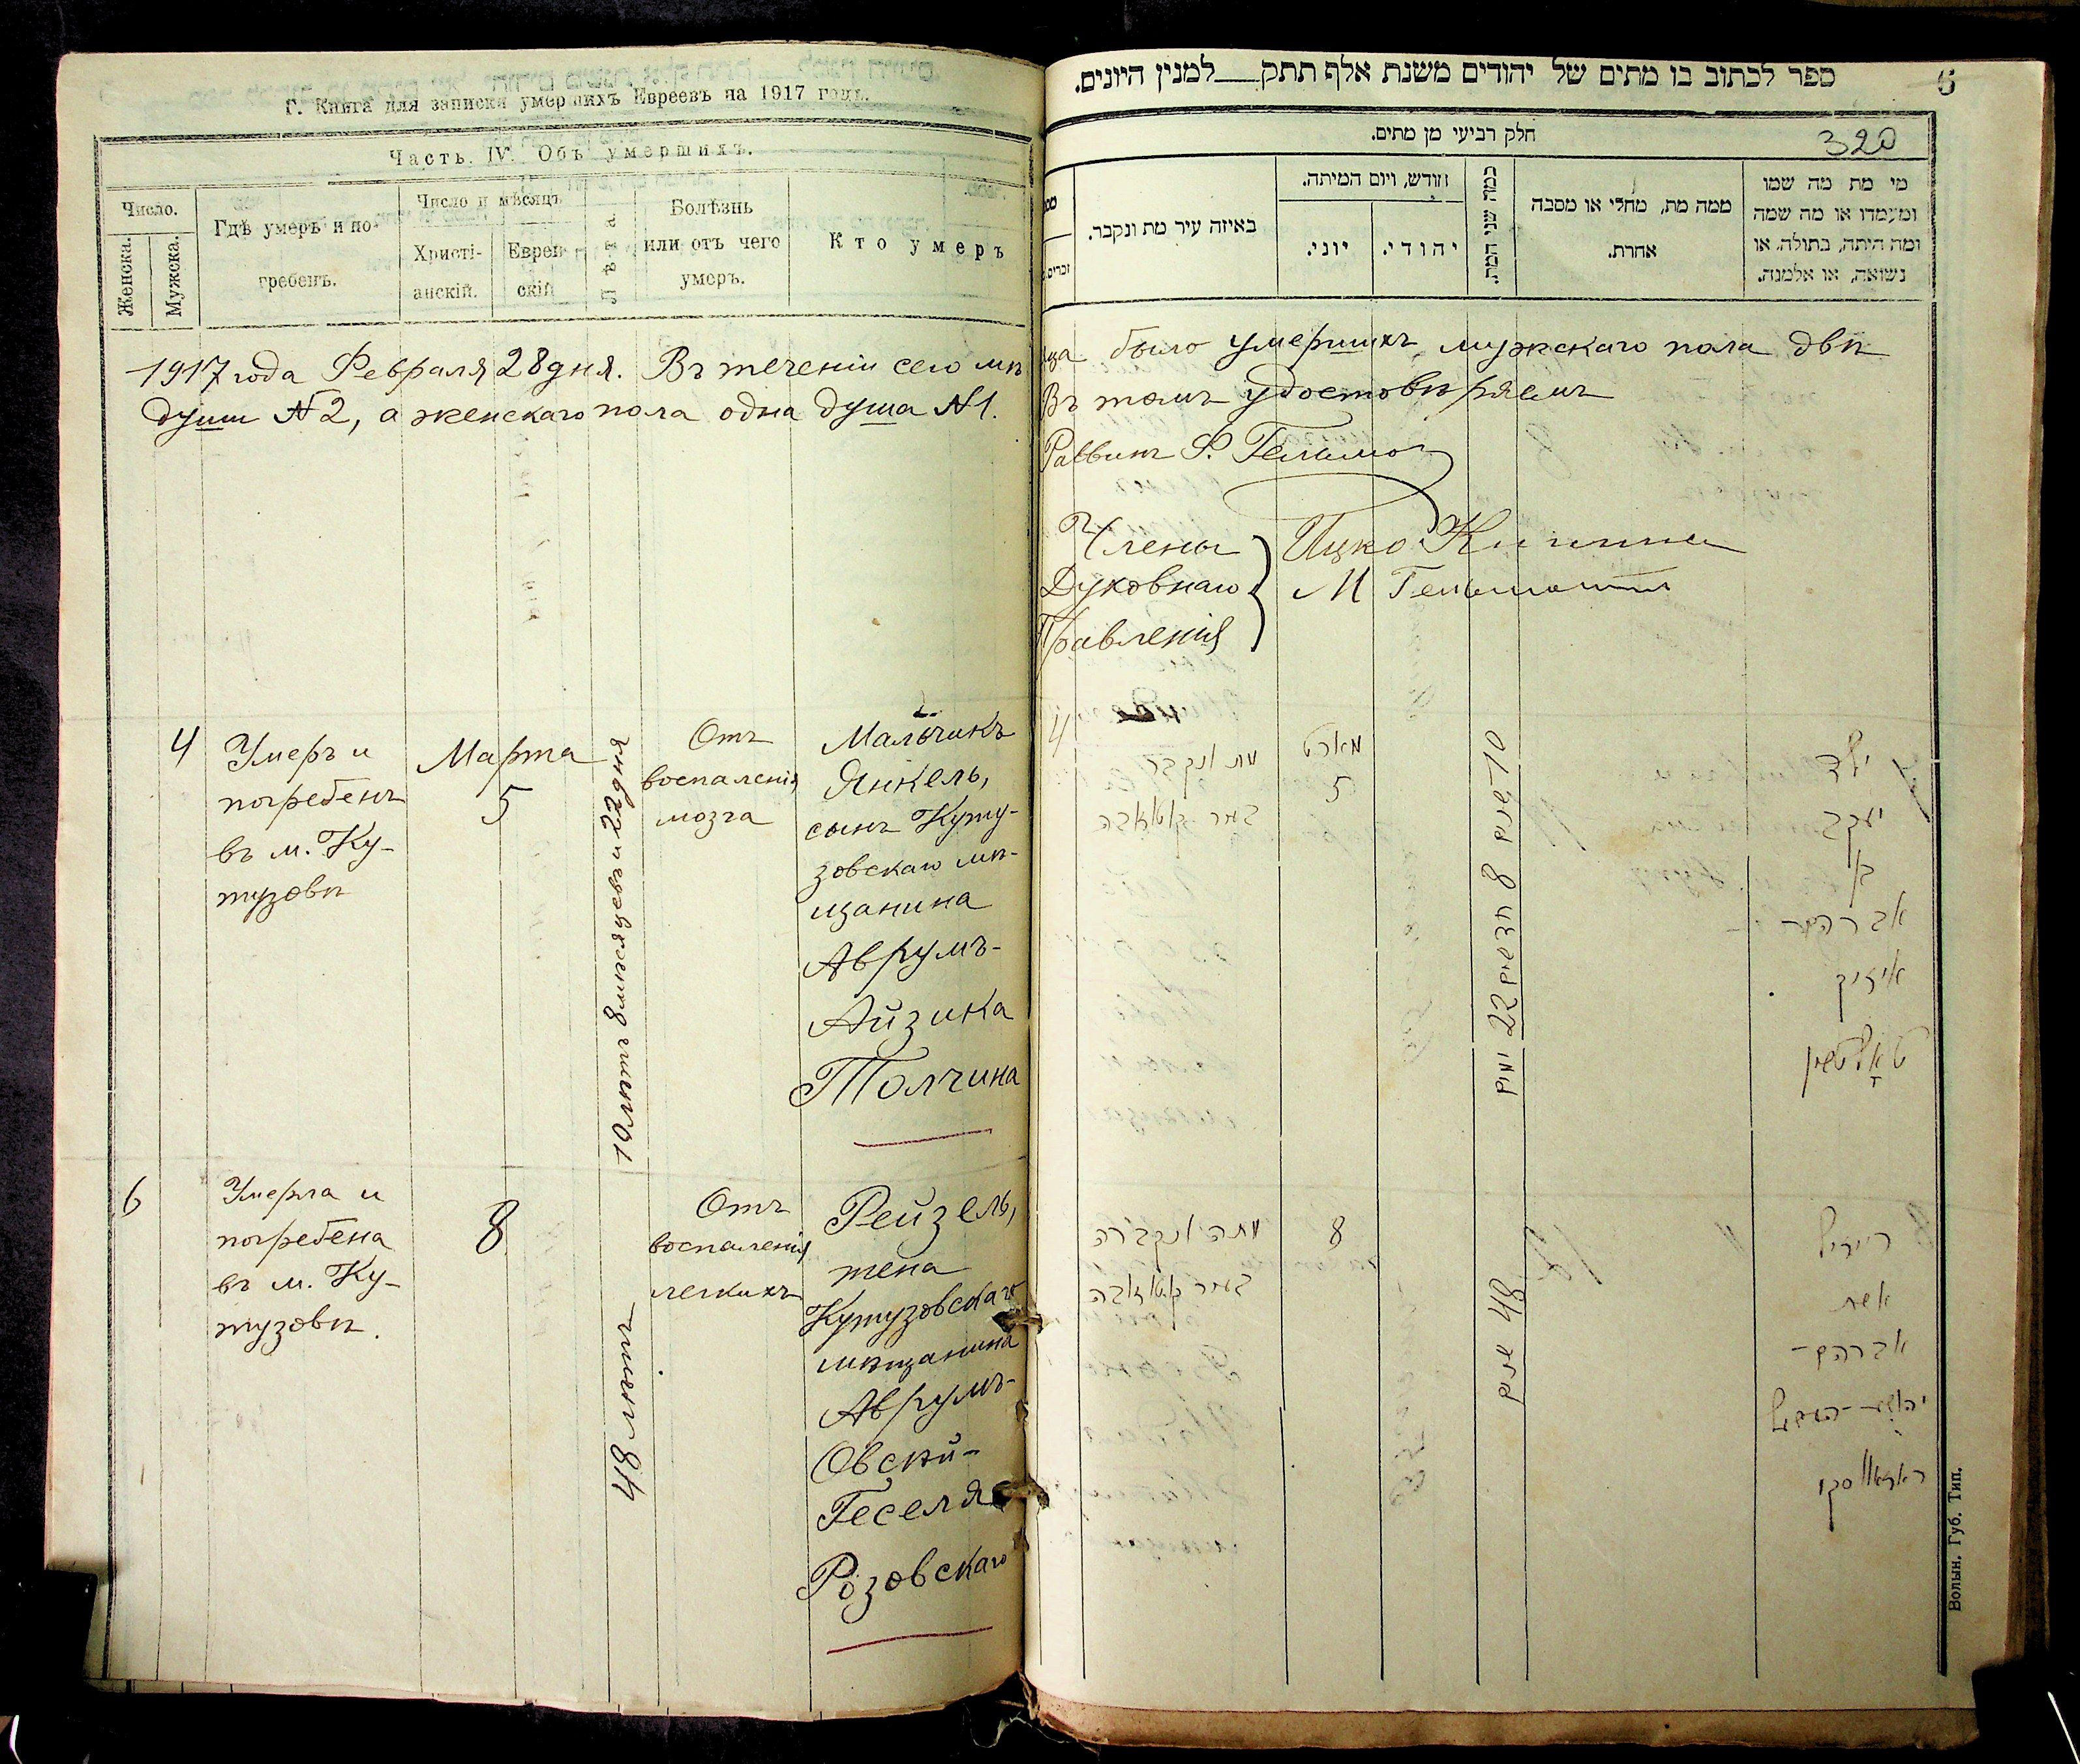 Г. Книга для записки умершихъ Евреевъ на 1917 годъ.
Часть. IV. Объ умершихъ.
Число.
Женска.
Мужска.
Гдѣ умеръ и по-
гребенъ.
Число и мѣсяцъ
Христі-
анскій.
Еврей-
скій
Лѣта
Болѣзнь
или отъ чего
умеръ.
Кто умеръ
1917 года Февраля 28 дня. Въ теченіи сего мѣ
души №2, а женскаго пола одна душа №1.
4
Умеръ и
погребенъ
въ м. Ку-
тузовѣ
Марта
5
10 лѣтъ 8 мѣсяцевъ и 22 дня
Отъ
воспаленія
мозга
Мальчикъ
Янкель,
сынъ Куту-
зовскаго мѣ-
щанина
Аврумъ-
Айзика
Толчина
6
Умерла и
погребена
въ м. Ку-
тузовѣ.
8
48 лѣтъ
Отъ
воспаленія
легкихъ
Рейзель,
жена
Кутузовскаго
мѣщанина
Аврумъ-
Овсѣй-
Геселя
Розовскаго
ספר לכתוב בו מתים של יהודים משנת אלף תתק למנין היונים.
6
חלק רביעי מן מתים.
320
באיזה עיר מת ונקבר.
חודש, ויום המיתה.
יוני.
יהודי.
כמה שני המת.
ממה מת, מחלי או מסבה
אחרת.
מי מת מה שמו
ומעמדו או מה שמה
ומה היתה, בתולה, או
נשואה, או אלמנה.
ца было умершихъ мужскаго пола двѣ
Въ томъ удостовѣряемъ
Раввинъ
Члены
Духовнаго
Правленія
Ицко
М
4
מת ונקבר
מארט
5
10 שנים 8 חדשים 22 ימים
ילד
יעקב
בן
אברהם-
אייזיק
טאָלטשין
מתה ונקברה
8
48 שנים
רייזיל
אשת
אברהם-
ראזאווסקי
Волын. Губ. Тип.